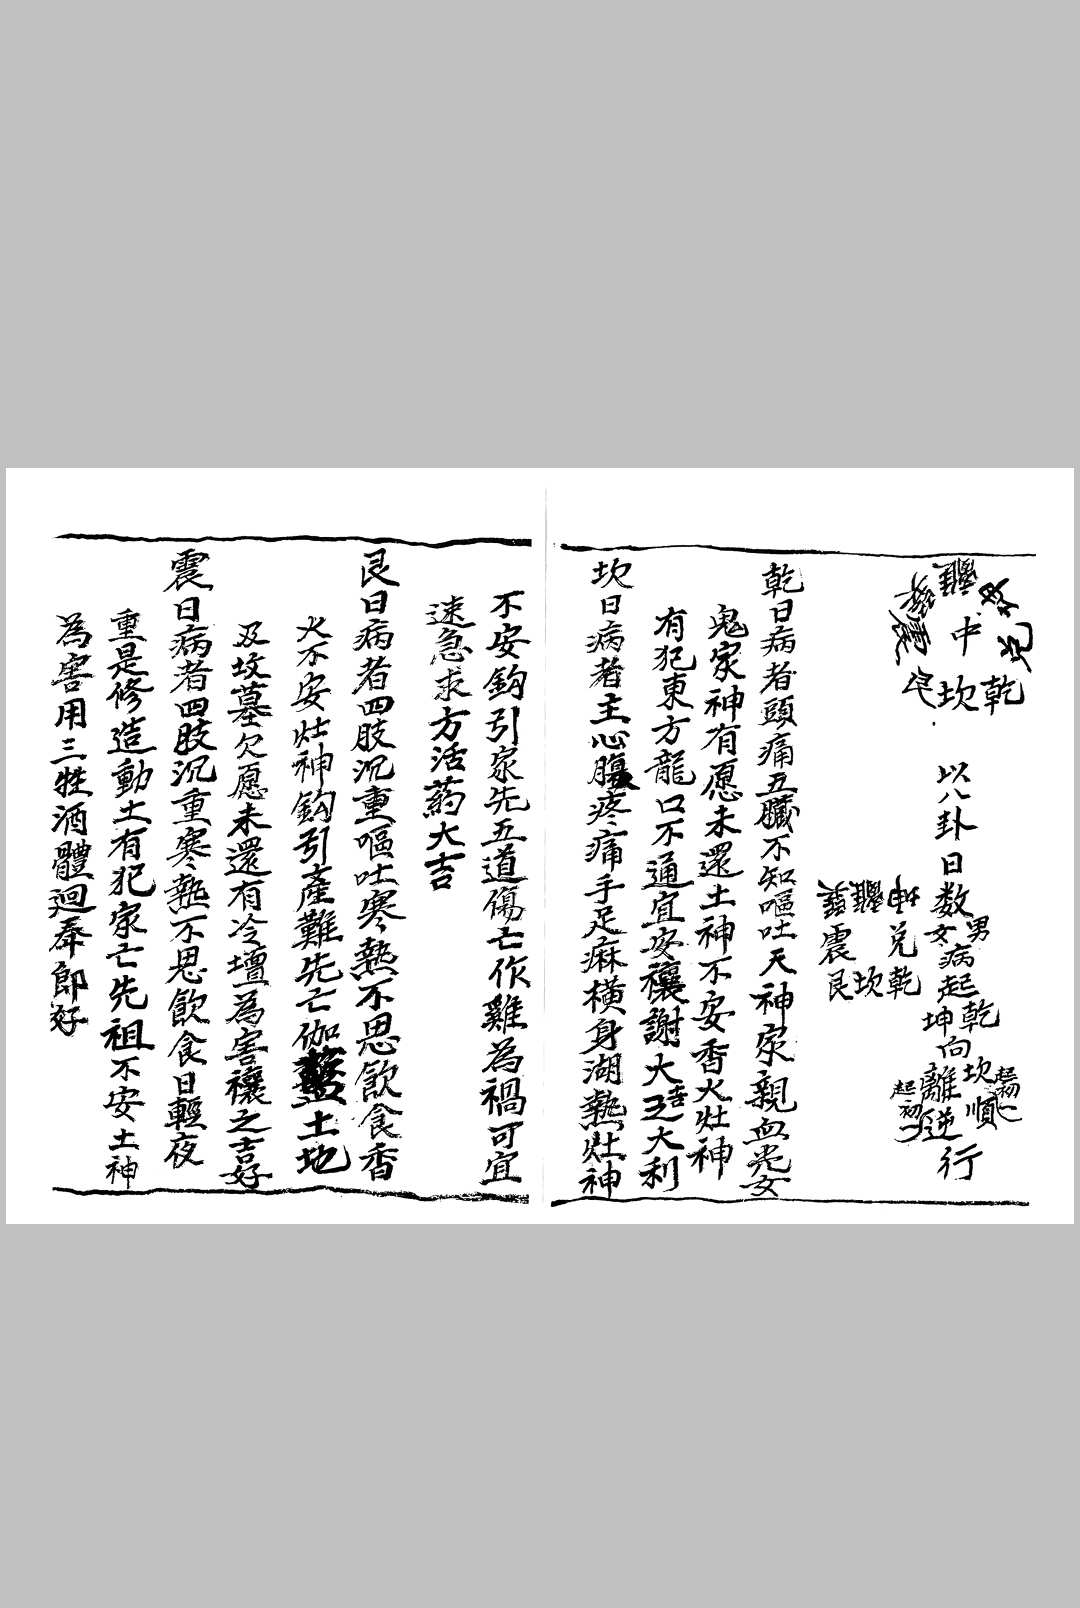 離 坤 兌 中 巽 震 艮 坎 乾
以八卦日数男女病起乾坤向坎離順逆行
起初一
起初一
坤 離 巽 兌 震 乾 坎 艮
乾日病者頭痛五臟不知嘔吐天神家親血光女
鬼家神有愿未還土神不安香火灶神
有犯東方龍口不通宜安穰謝大吉之大利
坎日病者主心腹疼痛手足麻橫身湖熱灶神
不安鈎引家先五道傷亡作難為禍可宜
速急求方活葯大吉
艮日病者四肢沉重嘔吐寒熱不思飲食香
火不安灶神鈎引產難先亡伽藍土地
及坟墓欠愿未還有冷壇為害穰之吉好
震日病者四肢沉重寒熱不思飲食日輕夜
重是修造動土有犯家亡先祖不安土神
為害用三牲酒體迴奉即好